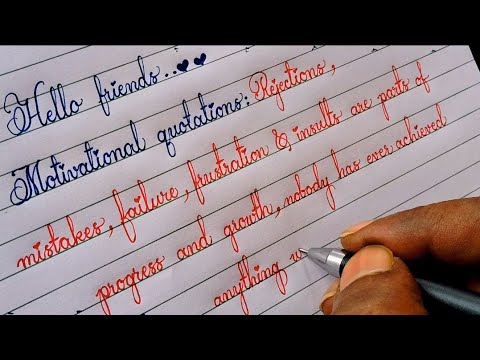 Hello friends..♥♥
Motivational quotations: Rejections,
mistakes, failure, frustration & insults are parts of
progress and growth, nobody has ever achieved
anything w